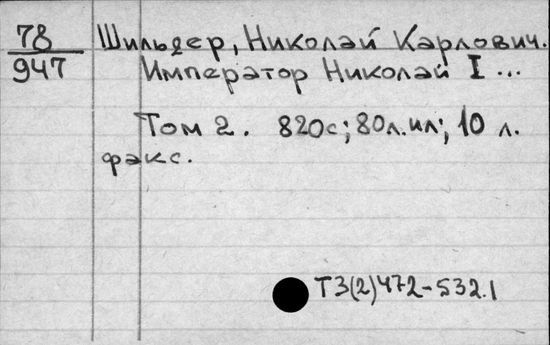 78
947
Шильдер, Николай Карлович.
Император Николай I ...
Том 2. 820с; 80л.ил; 10 л.
факс.
Т3(2)472-532.1